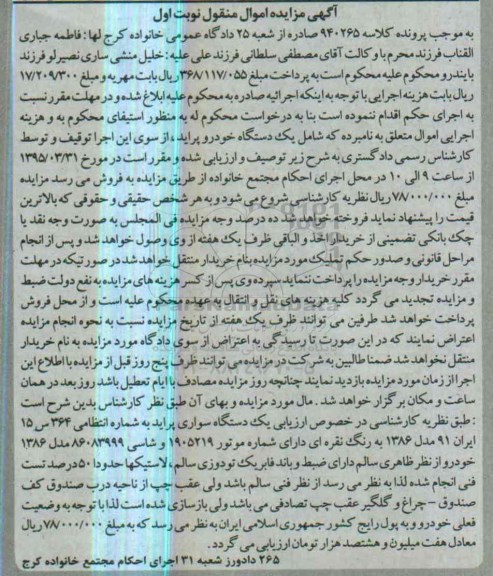 آگهی مزایده اموال منقول نوبت اول
به موجب پرونده کلاسه ۹۴۰۲۶۵ صادره از شعبه ۲۵ دادگاه عمومی خانواده کرج لها : فاطمه جباری
القناب فرزند محرم با وکالت آقای مصطفی سلطانی فرزند علی علیه : خلیل منشی ساری نصیرلو فرزند
بایندر و محکوم علیه محکوم است به پرداخت مبلغ ۳۶۸/۱۱۷/۰۵۵ ریال بابت مهریه و مبلغ ۱۷/۲۰۹/۳۰۰
ریال بابت هزینه اجرایی با توجه به اینکه اجرائیه صادره به محکوم علیه ابلاغ شده و در مهلت مقرر نسبت
به اجرای حکم اقدام ننموده است بنا به درخواست محکوم له به منظور استیفای محکوم به و هزینه
اجرایی اموال متعلق به نامبرده که شامل یک دستگاه خودرو پراید ، از سوی این اجرا توقیف و توسط
کارشناس رسمی دادگستری به شرح زیر توصیف و ارزیابی شده و مقرر است در مورخ ۱۳۹۵/۰۳/۳۱
از ساعت ۹ الی ۱۰ در محل اجرای احکام مجتمع خانواده از طریق مزایده به فروش می رسد مزایده
مبلغ ۷۸/۰۰۰/۰۰۰ ریال نظریه کارشناسی شروع می شود و به هر شخص حقیقی و حقوقی که بالاترین
قیمت را پیشنهاد نماید فروخته خواهد شد ده درصد وجه مزایده فی المجلس به صورت وجه نقد یا
چک بانکی تضمینی از خریدار اخذ و الباقی ظرف یک هفته از وی وصول خواهد شد و پس از انجام
مراحل قانونی و صدور حکم تملیک مورد مزایده بنام خریدار منتقل خواهد شد در صورتیکه در مهلت
مقرر خریدار وجه مزایده را پرداخت ننماید سپرده وی پس از کسر هزینه های مزایده به نفع دولت ضبط
و مزایده تجدید می گردد کلیه هزینه های نقل و انتقال به عهده محکوم علیه است و از محل فروش
پرداخت خواهد شد طرفین می توانند ظرف یک هفته از تاریخ مزایده نسبت به نحوه انجام مزایده
اعتراض نمایند که در این صورت تا رسیدگی به اعتراض از سوی دادگاه مورد مزایده به نام خریدار
منتقل نخواهد شد ضمنا طالبین به شرکت در مزایده می توانند ظرف پنج روز قبل از مزایده با اطلاع این
اجرا از زمان مورد مزایده بازدید نمایند چنانچه روز مزایده مصادف با ایام تعطیل باشد روز بعد در همان
ساعت و مکان برگزار خواهد شد . مال مورد مزایده و بهای آن طبق نظر کارشناس بدین شرح است
: طبق نظریه کارشناسی در خصوص ارزیابی یک دستگاه سواری پراید به شماره انتظامی ۳۶۴ س ۱۵
ایران ۹۱ مدل ۱۳۸۶ به رنگ نقره ای دارای شماره موتور ۱۹۰۵۲۱۹ و شاسی ۸۶۰۸۳۹۹۹ مدل ۱۳۸۶
خودرو از نظر ظاهری سالم دارای ضبط و باند فابریک تودوزی سالم ، لاستیکها حدودا ۵۰ درصد تست
فنی انجام شده لذا به نظر می رسد از نظر فنی سالم باشد ولی عقب چپ از ناحیه درب صندوق کف
صندوق – چراغ و گلگیر عقب چپ تصادفی می باشد ولی بازسازی شده است لذا با توجه به وضعیت
فعلی خودرو و به پول رایج کشور جمهوری اسلامی ایران به نظر می رسد که به مبلغ ۷۸/۰۰۰/۰۰۰ ریال
معادل هفت میلیون و هشتصد هزار تومان ارزیابی می گردد.
۲۶۵ دادورز شعبه ۳۱ اجرای احکام مجتمع خانواده کرج